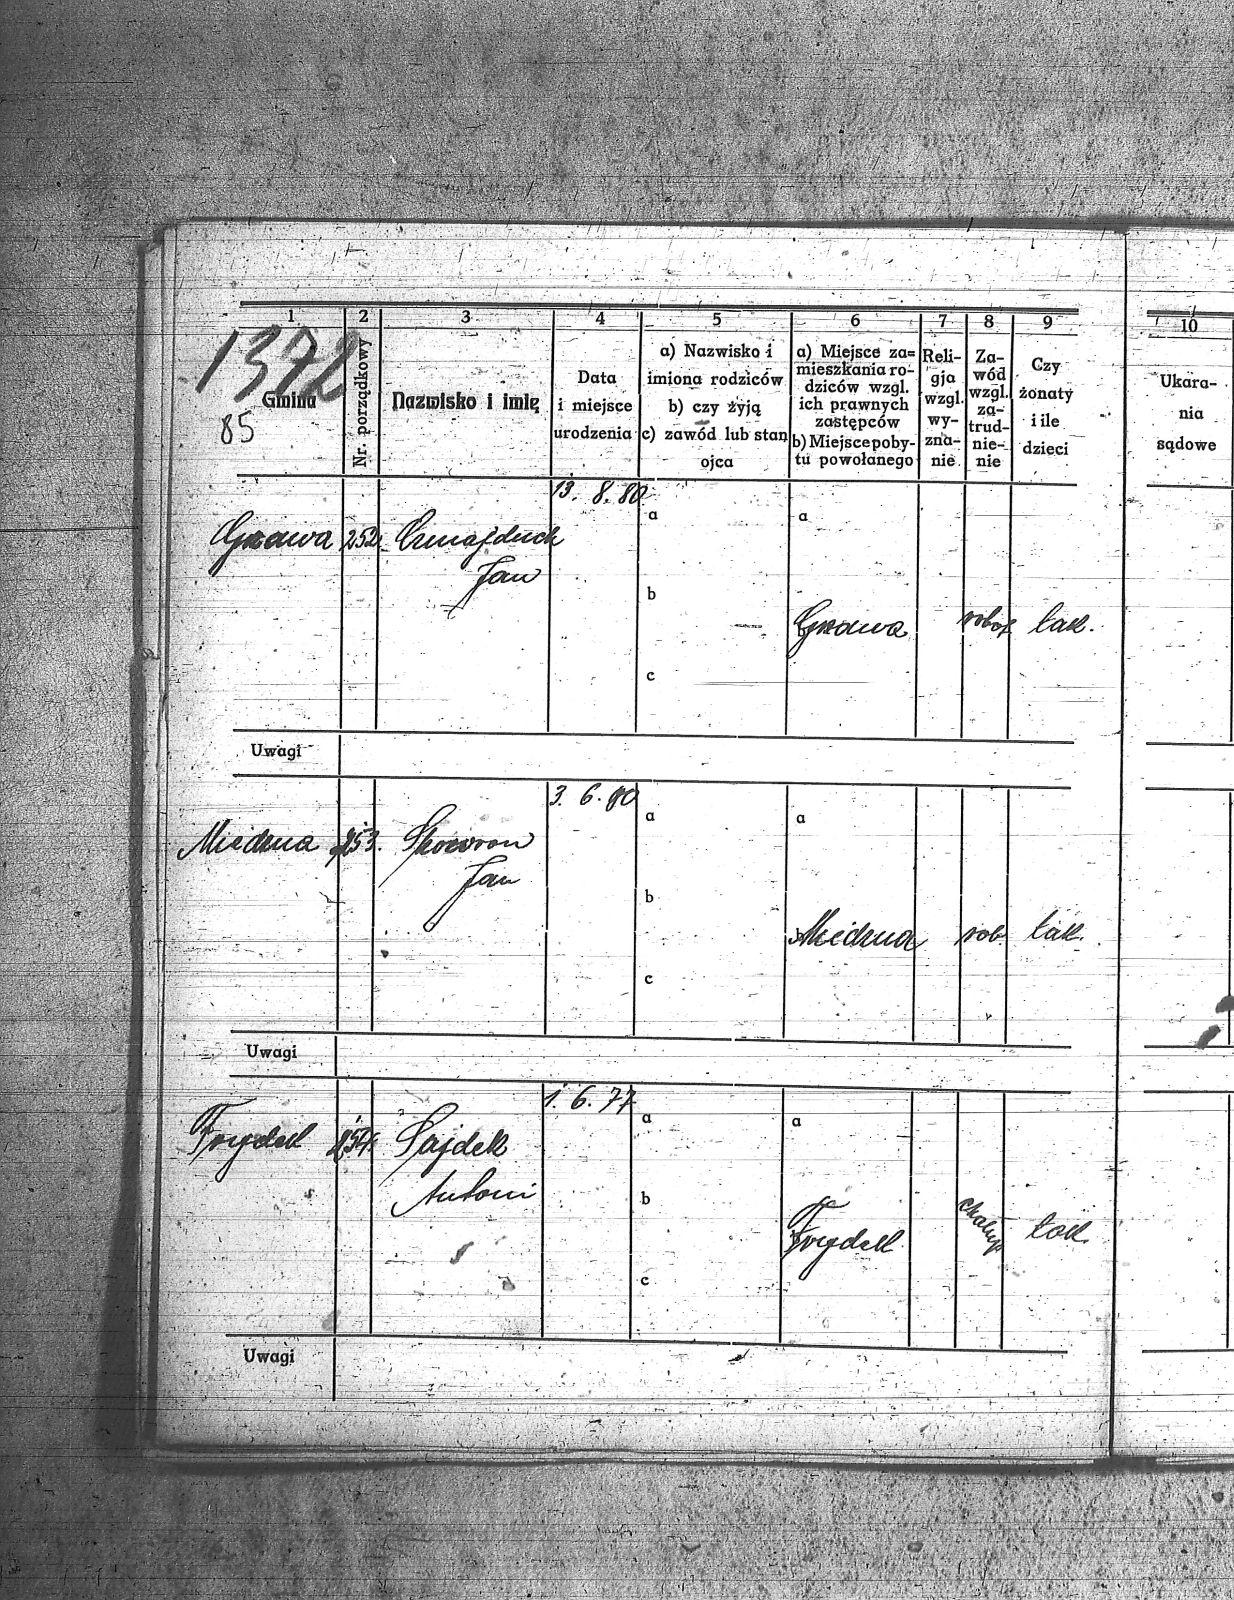 1 2 3 4 5 6 7 8 9 10
1372
Gmina
85
Nr. porządkowy
Nazwisko i imię
Data
i miejsce
urodzenia
a) Nazwisko i
imiona rodziców
b) czy żyją
c) zawód lub stan
ojca
a) Miejsce za=
mieszkania ro-
dziców wzgl.
ich prawnych
zastępców
b) Miejsce poby-
tu powołanego
Reli-
gja
wzgl.
wy-
zna-
nie
Za-
wód
wzgl.
za-
trud-
nie-
nie
Czy
żonaty
i ile
dzieci
Ukara-
nia
sądowe
13. 8. 80
a a
Grzawa 252. Czmajduch
Jan
b
Grzawa robot tak.
c
Uwagi
3. 6. 80
a a
Miedzna 253. Skowron
Jan
b
Miedzna rob tak.
c
Uwagi
1. 6. 77
a a
Frydek 254. Sajdek
Antoni
b
Frydek chałup tak
c
Uwagi